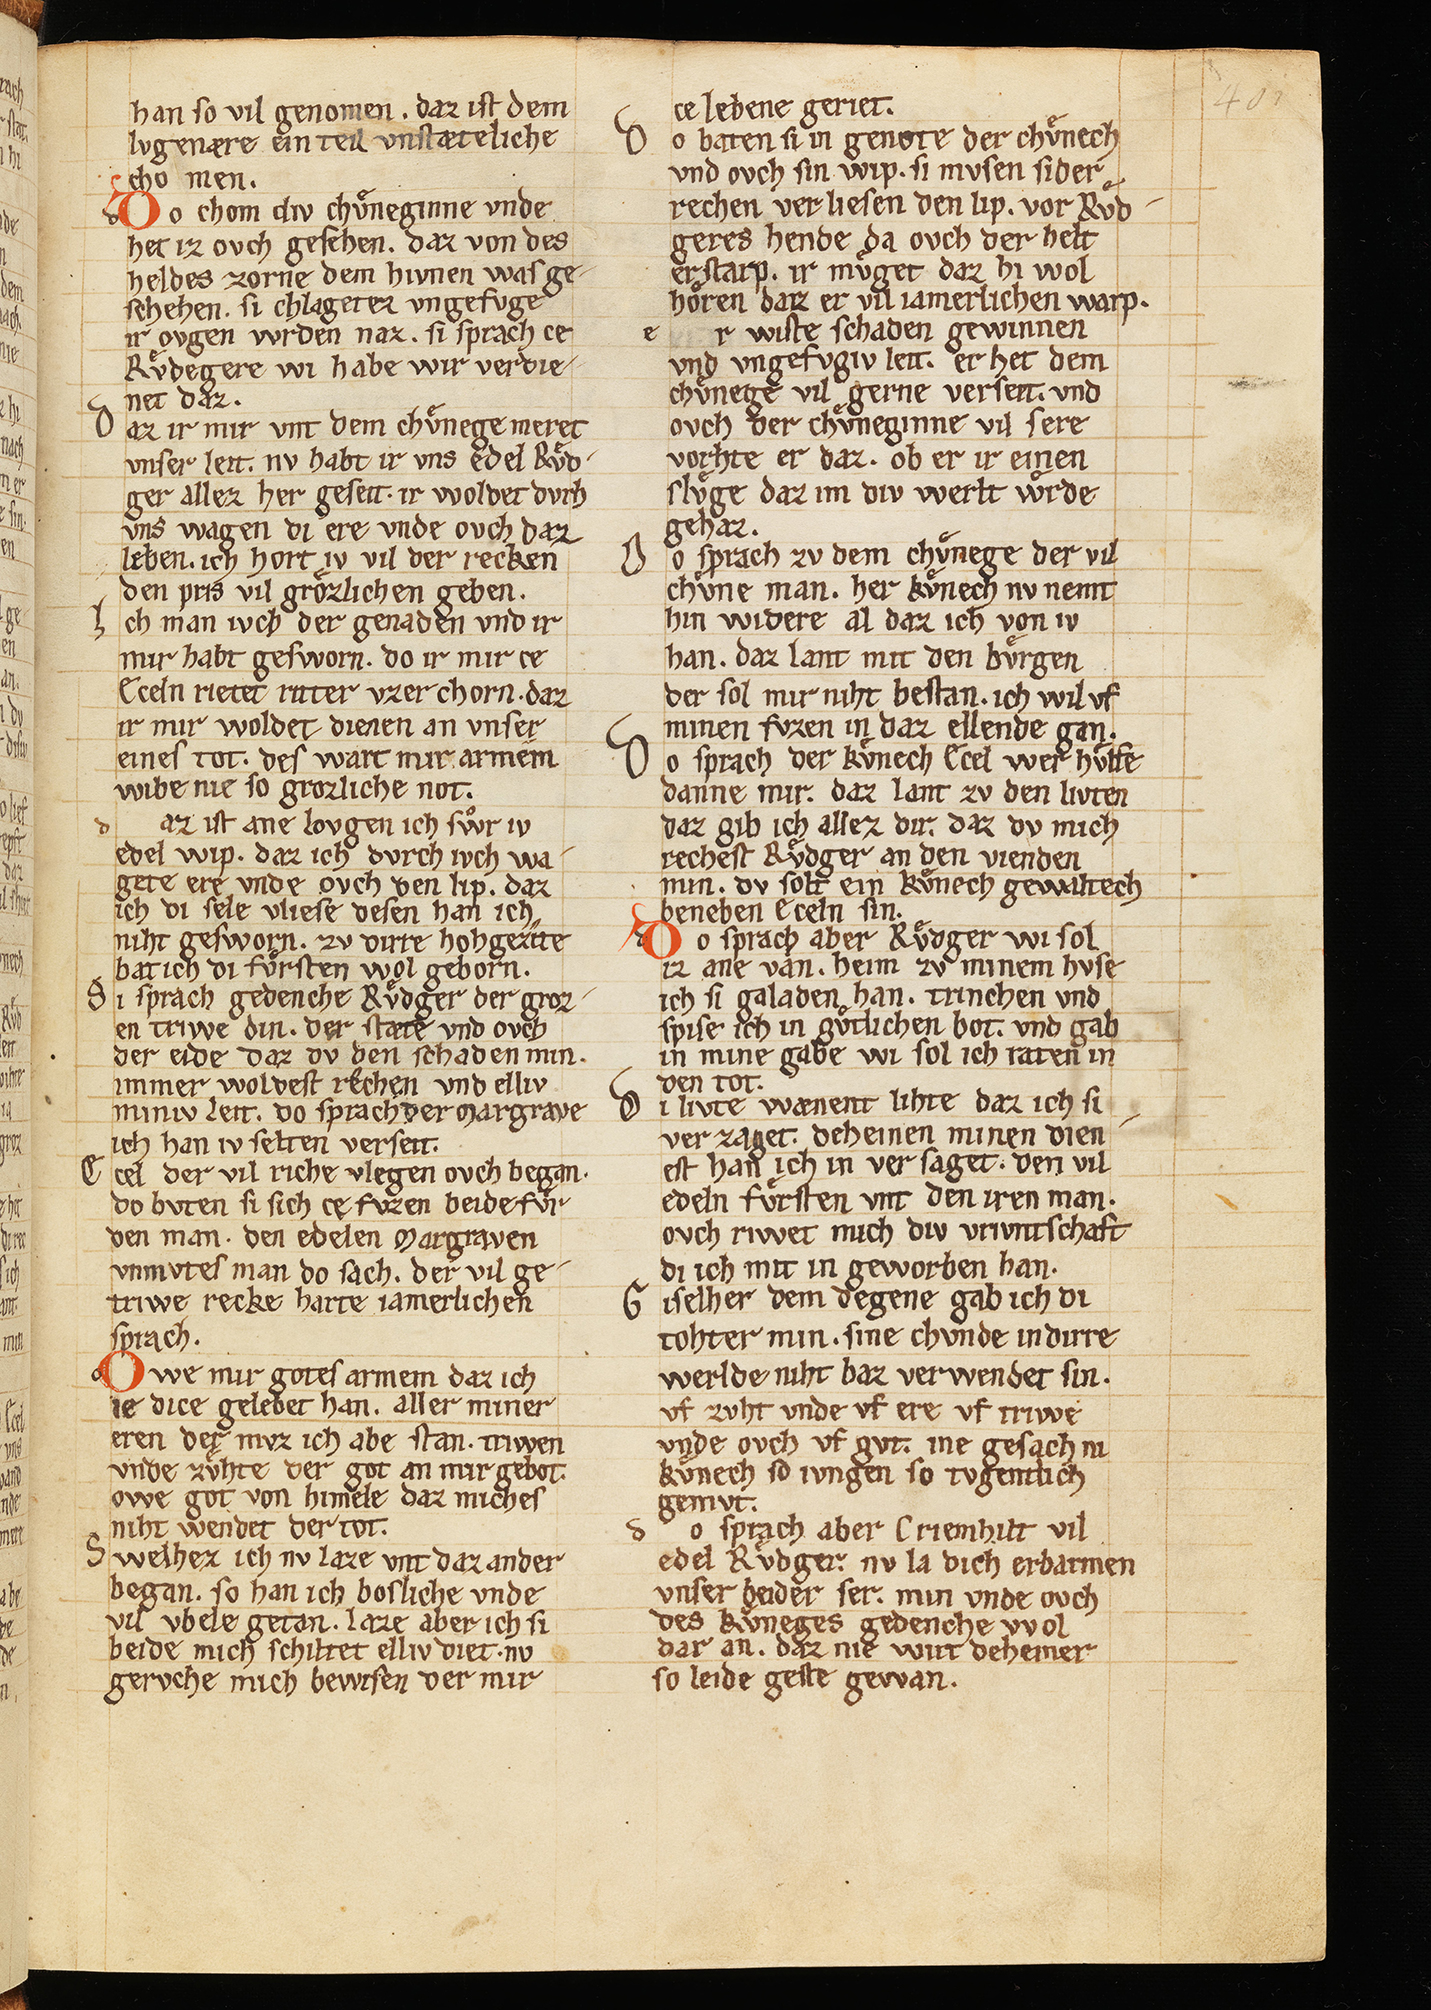 han so vil genomen. daz ist dem
lvgenære ein teil vnstæteliche
cho men.
Do chom div chv̊neginne vnde
het iz ovch gesehen. daz von des
heldes zorne dem hivnen was ge-
schehen. si chlagetez vngefvge
ir ovgen wrden naz. si sprach ce
Rv̊degere wi habe wir verdie-
net daz.
Daz ir mir vnt dem chv̊nege meret
vnser leit. nv habt ir vns edel Rv̊d-
ger allez her geseit. ir woldet dvrh
vns wagen di ere vnde ovch daz
leben. ich hort iv vil der recken
den pris vil gro̊zlichen geben.
Ich man ivch der genaden vnd ir
mir habt gesworn. do ir mir ce
Eceln rietet ritter vzerchorn. daz
ir mir woldet dienen an vnser
eines tot. des wart mir armem
wibe nie so grozliche not.
daz ist ane lovgen ich swv̊r iv
edel wip. daz ich dvrch ivch wa-
gete ere vnde ovch den lip. daz
ich di sele vliese desen han ich
niht gesworn. zv dirre hohgezite
bat ich di fv̊rsten wol geborn.
Si sprach gedenche Rv̊dger der groz-
en triwe din. der state vnd ovch
der eide daz dv den schaden min.
immer woldest rechen vnd elliv
miniv leit. do sprach der Margrave
ich han iv selten verseit.
Ecel der vil riche vlegen ovch began.
do bvten si sich ce fvzen beide fv̊r
den man. den edelen Margraven
vnmvtes man do sach. der vil ge-
triwe recke harte iamerlichen
sprach.
Owe mir gotes armem daz ich
ie dice gelebet han. aller miner
eren der mvz ich abe stan. triwen
vnde zv̊hte der got an mir gebot.
owe got von himele daz miches
niht wendet der tot.
Swelhez ich nv laze vnt daz ander
began. so han ich bosliche vnde
vil vbele getan. laze aber ich si
beide mich schiltet elliv diet. nv
gervche mich bewisen der mir
ce lebene geriet.
Do baten si in genote der chv̊nech
vnd ovch sin wip. si mvsen sider
rechen verliesen den lip. vor Rv̊d-
geres hende da ovch der helt
erstarp. ir mv̊get daz hi wol
ho̊ren daz er vil iamerlichen warp.
er wiste schaden gewinnen
vnd vngefvgiv leit. er het dem
chv̊nege vil gerne verseit. vnd
ovch der chv̊neginne vil sere
vorhte er daz. ob er ir einen
slv̊ge daz im div werlt wv̊rde
gehaz.
Do sprach zv dem chv̊nege der vil
chv̊ne man. her kv̊nech nv nemt
hin widere al daz ich von iv
han. daz lant mit den bv̊rgen
der sol mir niht bestan. ich wil vf
minen fvzen in daz ellende gan.
Do sprach der kv̊nech Ecel wer hv̊lfe
danne mir. daz lant zv den livten
daz gib ich allez dir. daz dv mich
rechest Rv̊dger an den vienden
min. dv solt ein kv̊nech gewaltech
beneben Eceln sin.
Do sprach aber Rv̊dger wi sol
iz ane van. heim zv minem hvse
ich si galaden han. trinchen vnd
spise ich in gv̊tlichen bot. vnd gab
in mine gabe wi sol ich raten in
den tot.
Di livte wænent lihte daz ich si
ver zaget. deheinen minen dien-
est han ich in ver saget. den vil
edeln fv̊rsten vnt den iren man.
ovch riwet mich div vrivntschaft
di ich mit in geworben han.
Giselher dem degene gab ich di
tohter min. sine chvnde in dirre
werlde niht baz verwendet sin.
vf zvht vnde vf ere vf triwe
vnde ovch vf gvt. ine gesach ni
kv̊nech so ivngen so tvgentlich
gemvt.
do sprach aber Criemhilt vil
edel Rv̊dger. nv la dich erbarmen
vnser beider ser. min vnde ovch
des kv̊neges gedenche wol
dar an. daz nie wirt deheiner
so leide geste gewan.